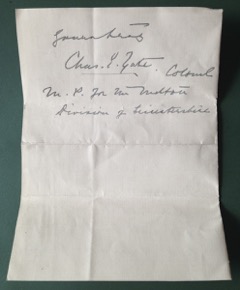 Yours truly
Chas. E. Yate. Colonel
M.P. for the Melton
Division of Leicestershire